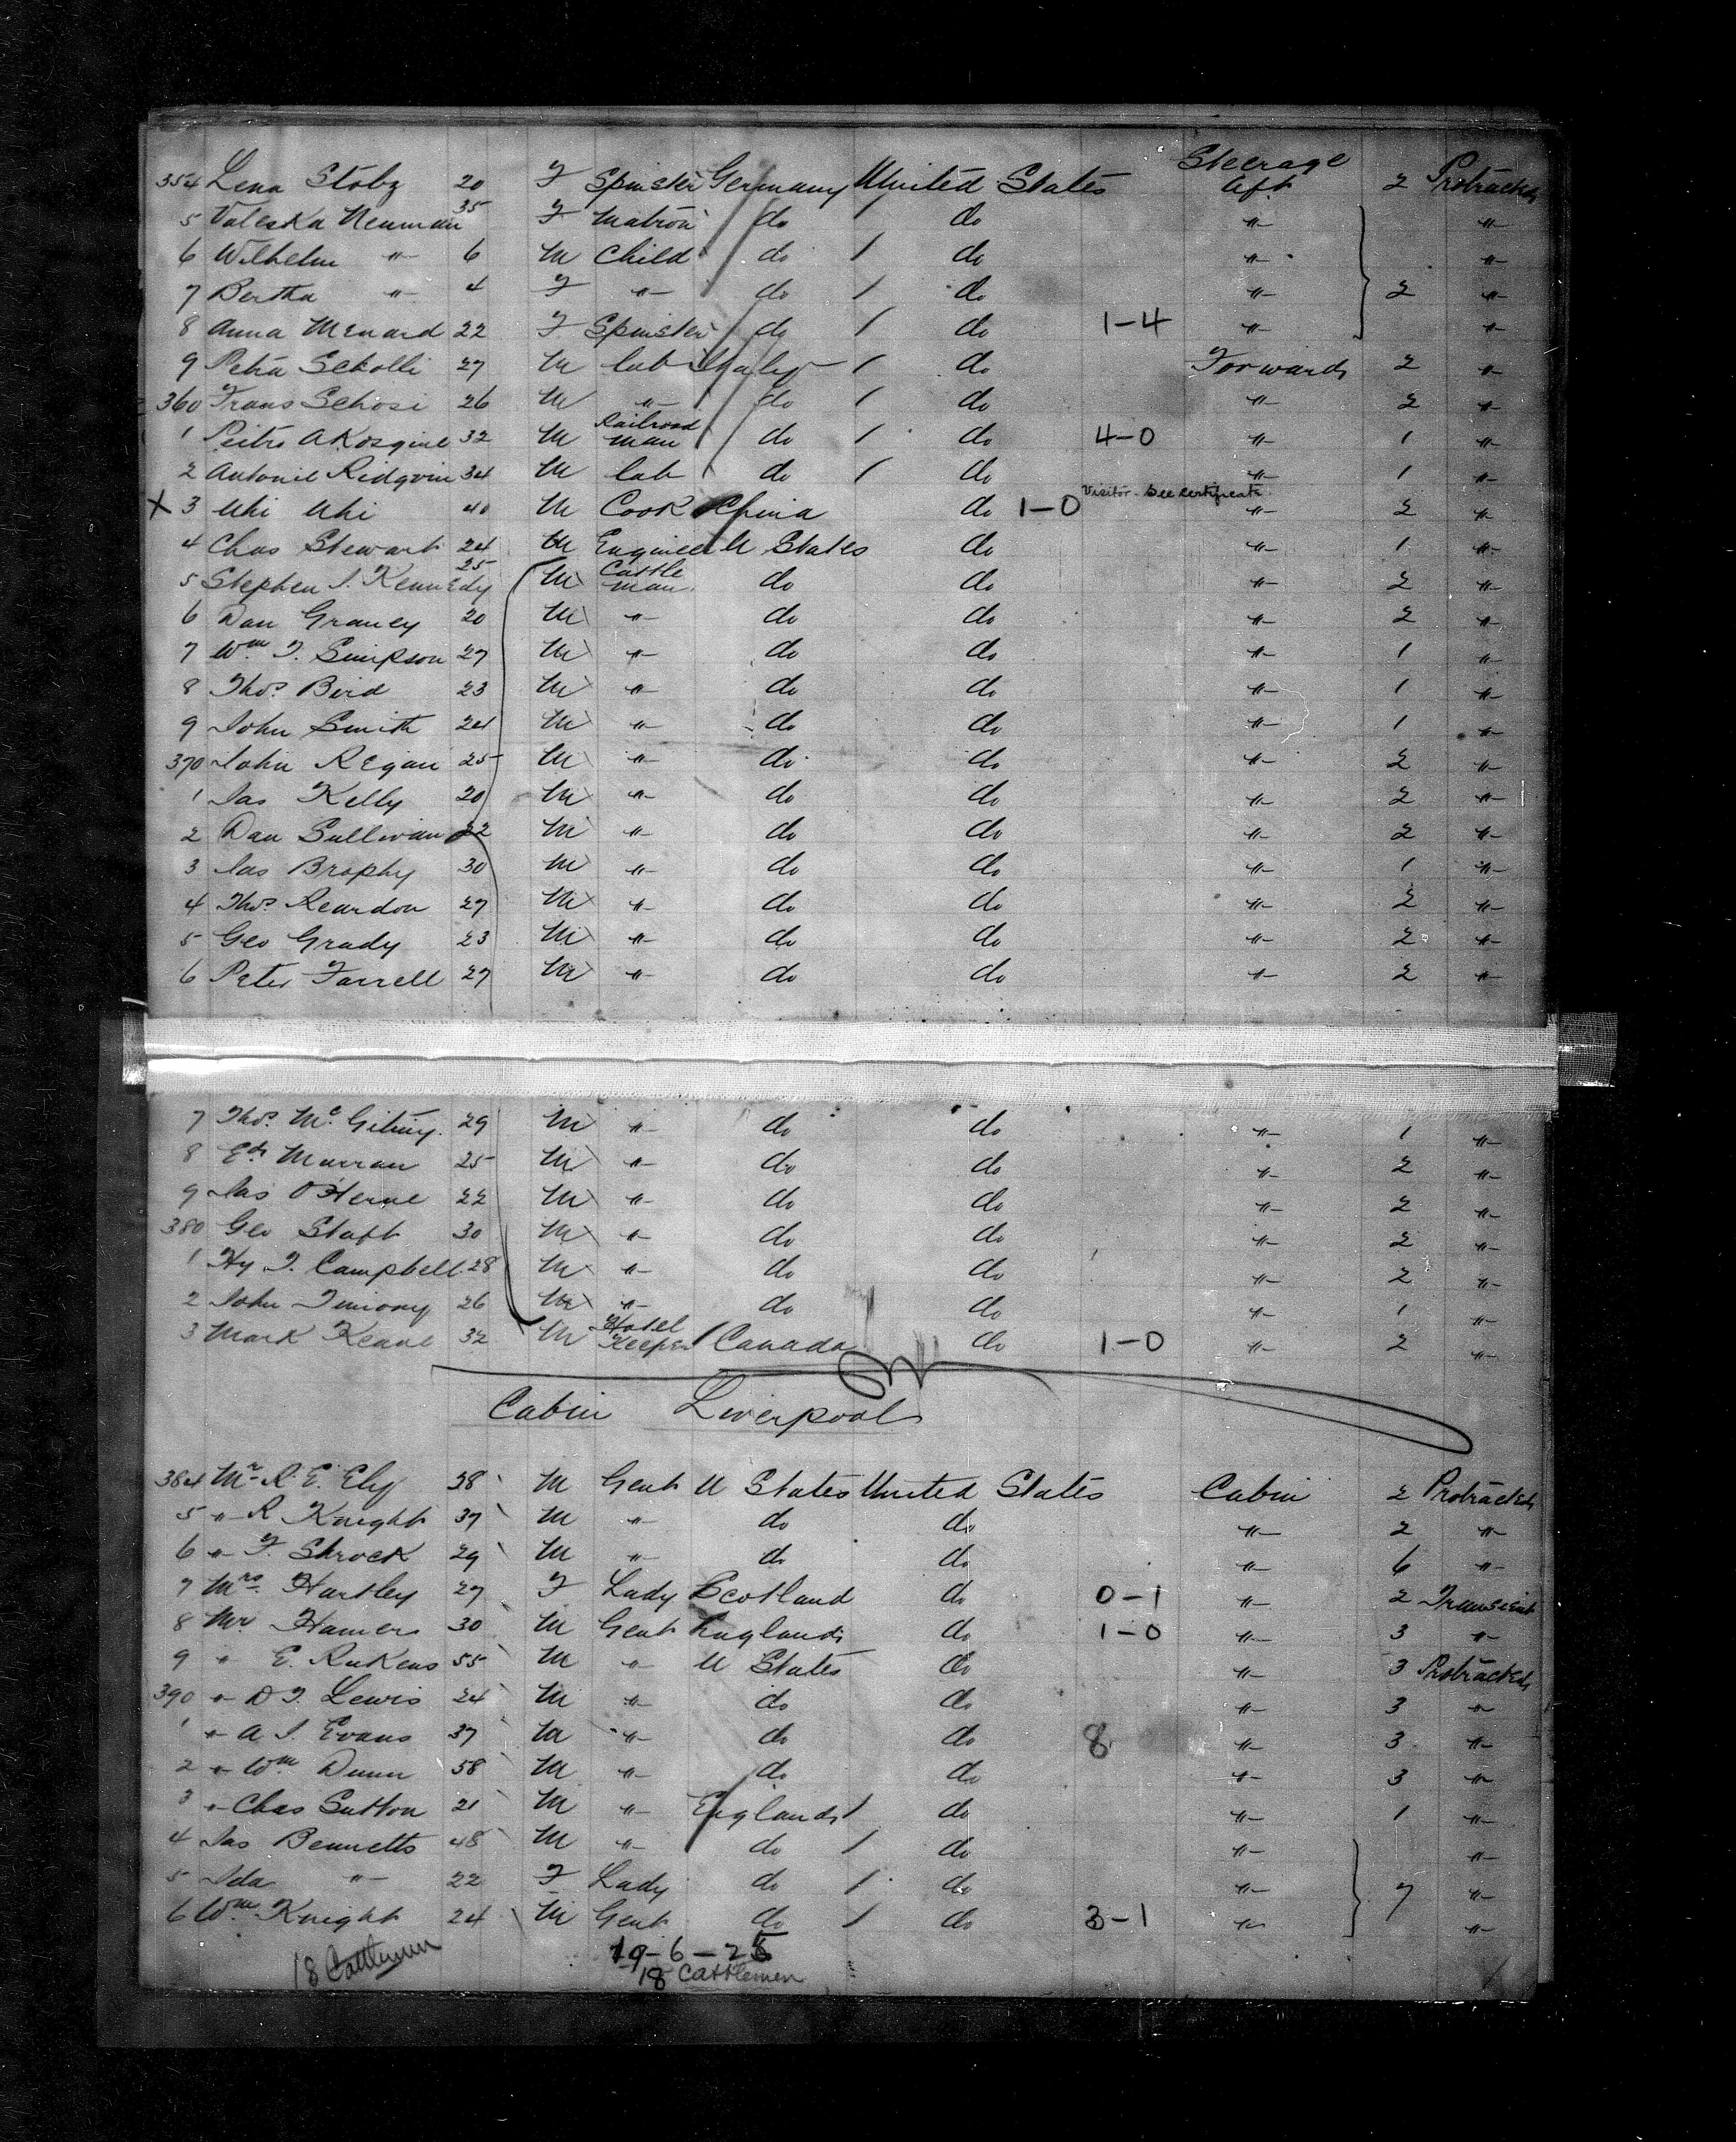 Steerage
354 Lena Stobz 20 F Spinster Germany United States Aft 2 Protracted
5 Valeska Neuman 35 F Matron do / do " "
6 Wilhelm " 6 M Child do / do " "
7 Bertha " 4 F " do / do " 2 "
8 Anna Menard 22 F Spinster do / do 1-4 " "
9 Petra Sekolli 27 M lab Italy / do Forwards 2 "
360 Frans Sehosi 26 M " do / do " 2 "
1 32 M Railroad man do / do 4-0 " 1 "
2 Antonie 34 M lab do / do " 1 "
X 3 Uhi Uhi 40 M Cook China do 1-0 Visitor - See Certificate " 2 "
4 Chas Stewart 24 M Engineer U States do " 1 "
5 Stephen J. Kennedy 25 M Cattle man do do " 2 "
6 Dan Graney 20 M " do do " 2 "
7 Wm T. Simpson 27 M " do do " 1 "
8 Thos Bird 23 M " do do " 1 "
9 John Smith 24 M " do do " 1 "
370 John Regan 25 M " do do " 2 "
1 Jas Kelly 20 M " do do " 2 "
2 Dan Sullivan 22 M " do do " 2 "
3 Jas Brophy 30 M " do do " 1 "
4 Thos Reardon 27 M " do do " 2 "
5 Geo Grady 23 M " do do " 2 "
6 Peter Farrell 27 M " do do " 2 "
7 Thos Mc 29 M " do do " 1 "
8 Ed Murran 25 M " do do " 2 "
9 Jas O'Herne 22 M " do do " 2 "
380 Geo Staft 30 M " do do " 2 "
1 Hy T. Campbell 28 M " do do " 2 "
2 John Timony 26 M " do do " 1 "
3 Mark Keane 32 M Hotel Keeper / Canada do 1-0 " 2 "
Cabin Liverpool
384 Mr R. E. Ely 38 M Gent U States United States Cabin 2 Protracted
5 " R Knight 37 M " do do " 2 "
6 " F. Shrock 29 M " do do " 6 "
7 Mrs Hartley 27 F Lady Scotland do 0-1 " 2 Transient
8 Mr Hamers 30 M Gent England do 1-0 " 3 "
9 " E. Rukens 55 M " U States do " 3 Protracted
390 " D T. Lewis 24 M " do do " 3 "
1 " A. J. Evans 37 M " do do 8 " 3 "
2 " Wm Dunn 58 M " do do " 3 "
3 " Chas Sutton 21 M " England / do " 1 "
4 Jas Bennetts 48 M " do / do " "
5 Ida " 22 F Lady do / do " 7 "
6 Wm Knight 24 M Gent do / do 3-1 " "
18 Cattlemen
19-6-25
18 Cattlemen